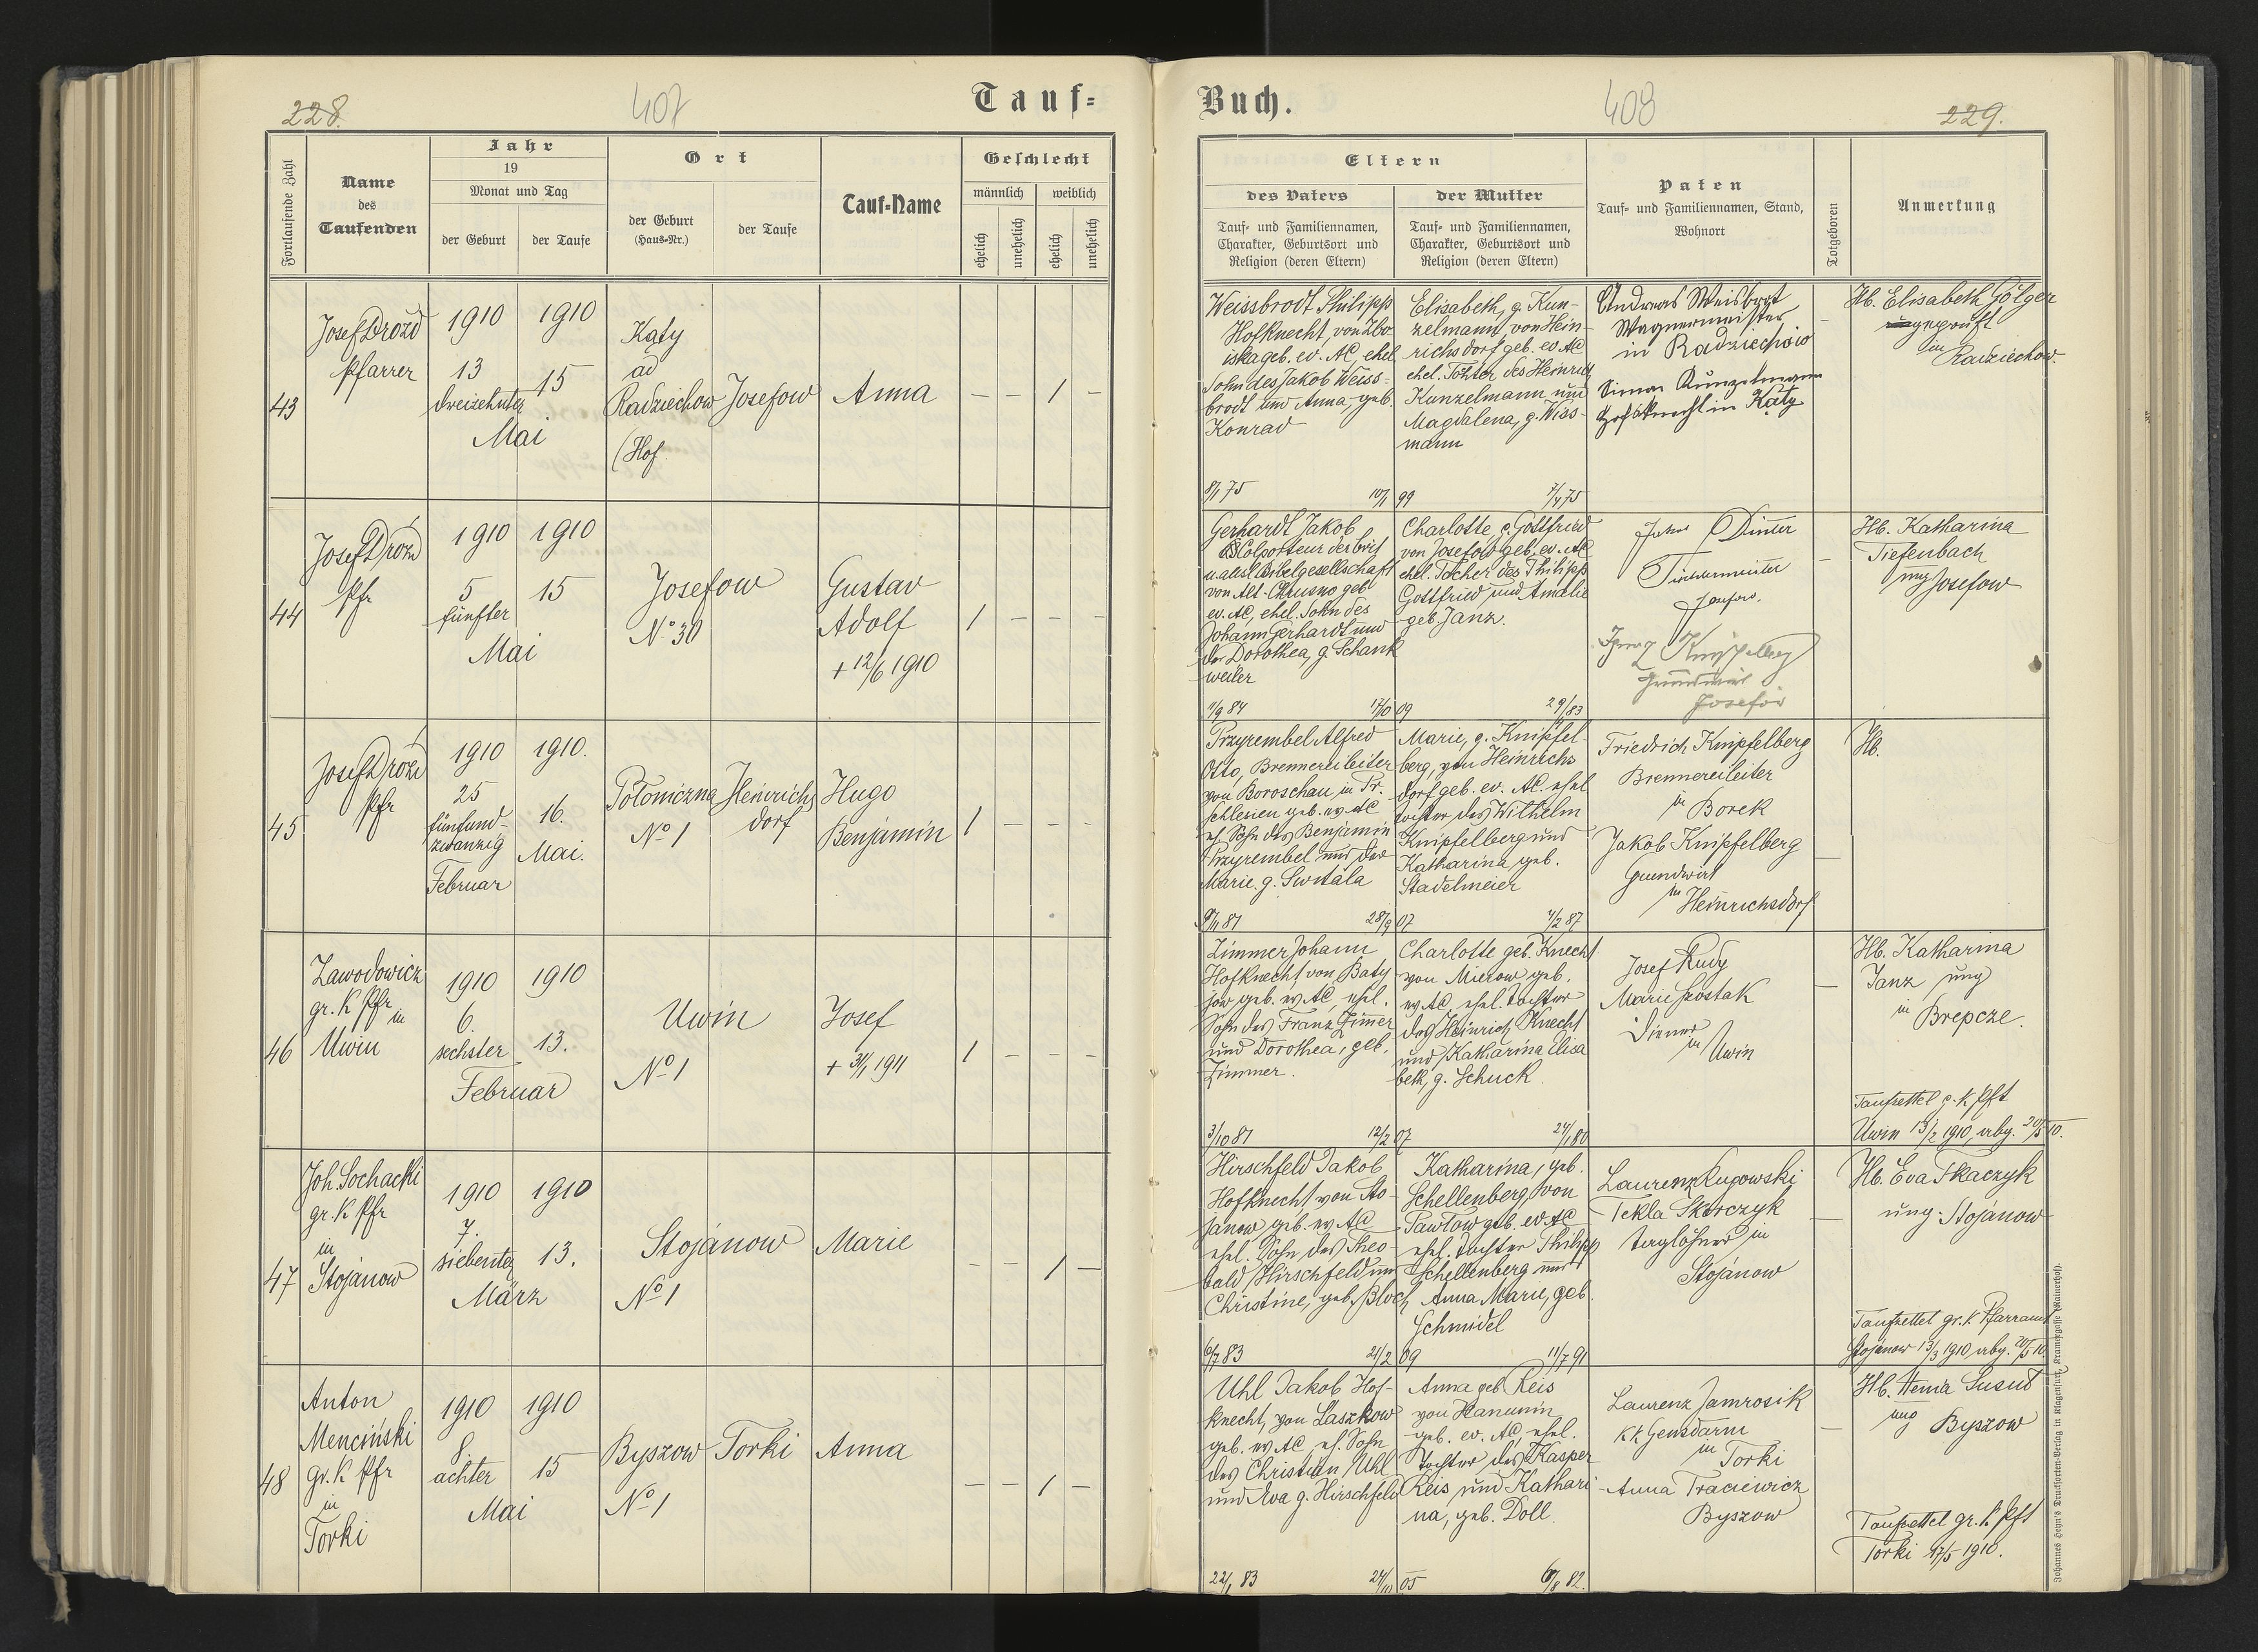 228.
407
Tauf=
Fortlaufende Zahl
Name
des
Taufenden
Jahr
19
Monat und Tag
der Geburt
der Taufe
Ort
der Geburt
(Haus-Nr.)
der Taufe
Tauf-Name
Geschlecht
männlich
weiblich
ehelich
unehelich
ehelich
unehelich
43
Josef Drozd
Pfarrer
1910
13
dreizehnter
1910
15
Mai
Katy
ad
Radziechow
(Hof.
Josefow
Anna
— — 1 —
44
Josef Drozd
Pfr
1910
5
fünfter
1910
15
Mai
Josefow
No 30
Gustav
Adolf
+ 12/6 1910
1 — — —
45
Josef Drozd
Pfr
1910
25
fünfund-
zwanzig
Februar
1910.
16.
Mai.
Połoniczna
No 1
Heinrichs
dorf
Hugo
Benjamin
1 — — —
46
Zawodowicz
gr. k Pfr
in
Uwin
1910
6.
sechster
1910
13.
Februar
Uwin
No 1
Josef
+ 31/1 1911
1 — — —
47
Joh. Sochacki
gr. k Pfr
in
Stojanow
1910
7.
siebenter
1910
13.
März
Stojanow
No 1
Marie
— — 1 —
48
Anton
Menciński
gr. k Pfr
in
Torki
1910
8.
achter
1910
15
Mai
Byszow
No 1
Torki
Anna
— — 1 —
Buch.
408
229.
Eltern
des Vaters
Tauf- und Familiennamen,
Charakter, Geburtsort und
Religion (deren Eltern)
der Mutter
Tauf- und Familiennamen,
Charakter, Geburtsort und
Religion (deren Eltern)
Paten
Tauf- und Familiennamen, Stand,
Wohnort
Totgeboren
Anmerkung
Weissbrodt Philipp
Hofknecht, von Zbo
iska geb. ev. AC, ehel.
Sohn des Jakob Weiss-
brodt und Anna, geb.
Konrad
8/1 75
10/1 99
Elisabeth, g. Kun-
zelmann, von Hein-
richsdorf geb. ev. AC
ehel. Tochter des Heinrich
Kunzelmann und
Magdalena, g. Wiss-
mann
7/4 75
Andreas Weisbrot
Wagnermeister
in Radziechow
Simon Kunzelmann
Hofsknecht in Katy
—
Hb. Elisabeth Gölger
ungeprüft
in Radziechow.
Gerhardt Jakob
Colporteur der brit
u. ausl. Bibelgesellschaft
von Alt-Chrusno geb
ev. AC, ehel. Sohn des
Johann Gerhardt und
der Dorothea, g. Schank
weiler
11/9 84
09
Charlotte, g. Gottfried
von Josefow geb. ev. AC
ehel. Tocher des Philipp
Gottfried und Amalie
geb. Janz.
83
Tischlermeister
Josefow.
Knipfelberg
Grundwirt
Josefow
—
Hb. Katharina
Tiefenbach
ung Josefow
Przyrembel Alfred
Otto, Brennereileiter
von Boroschau in Pr.
Schlesien geb. ev. AC
eh. Sohn des Benjamin
Przyrembel und der
Marie, g. Switala
28/9 07
Marie, g. Knipfel-
berg, von Heinrichs
dorf geb. ev. AC. ehel
tochter des Wilhelm
Knipfelberg und
Katharina, geb.
Stadelmeier
4/2 87
Friedrich Knipfelberg
Brennereileiter
in Borek
Jakob Knipfelberg
Grundwirt
in Heinrichsdorf
—
Hb.
Zimmer Johann
Hofknecht, von Baty
jow geb. ev. AC, ehel.
Sohn des Franz Zimmer
und Dorothea, geb.
Zimmer.
3/10 81
12/2 07
Charlotte geb. Knecht
von Mierow geb.
ev. AC, ehel. Tochter
des Heinrich Knecht
und Katharina Elisa
beth, g. Schuck.
24/1 80
Josef Rudy
Marie Szostak
Diener
in Uwin
—
Hb. Katharina
Janz ung
in Brepcze.
Taufzettel g. k Pft
Uwin 13/2 1910, erbg. 20/5 10.
Hirschfeld Jakob
Hofknecht von Sto-
janow geb. ev. AC
ehel. Sohn des Theo-
bald Hirschfeld und
Christine, geb. Bloch
6/7 83
21/2 09
Katharina, geb.
Schellenberg, von
Pawłow geb. ev. AC
ehel. tochter Philipp
Schellenberg und
Anna Marie, geb.
Schmidel
11/7 91
Laurenz Rugowski
Tekla Skorczyk
Taglöhner in
Stojanow
—
Hb. Eva Tkaczyk
ung. Stojanow
Taufzettel gr. k Pfarramt
Stojanow 13/3 1910 erbg. 20/5 10.
Uhl Jakob, Hof-
knecht, von Laszkow
geb. ev. AC, eh. Sohn
des Christian Uhl
und Eva g. Hirschfeld
22/1 83
05
Anna geb. Reis
von Hanunin
geb. ev. AC, ehel.
Tochter des Kasper
Reis und Kathari-
na, geb. Doll.
6/8 82.
Laurenz Jamrosik
kk Gensdarm
in Torki
Anna Traciewicz
Byszow
—
ung Byszow
Taufzettel gr. k. Pft
Torki 17/5 1910.
Johannes Heyn's Drucksorten-Verlag in Klagenfurt, Kramergasse (Rainerhof).